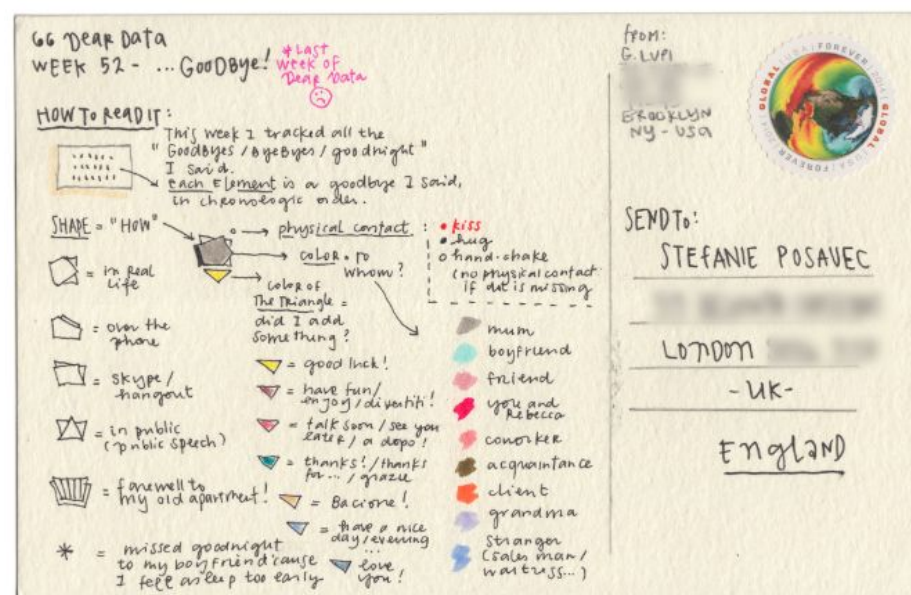 GG Dear Data
WEEK 52 - ... GOODBYE!
* Last
week of
Dear Data
HOW TO READ IT:
This week I tracked all the
"GOODBYES / BYEBYES / goodnight"
I said.
Each Element is a goodbye I said,
in chronologic order.
SHAPE = "HOW"
= in Real
Life
= over the
phone
= skype /
hangout
= in public
(public speech)
= farewell to
my old apartment!
* = missed goodnight
to my boyfriend 'cause
I fell asleep too early
physical contact:
• kiss
• hug
o hand-shake
(no physical contact
if dot is missing
color • to
whom?
color of
The Triangle =
did I add
something?
= good luck!
= have fun/
enjoy / divertiti!
= talk soon / see you
later / a dopo!
= thanks! / thanks
for... / grazie
= Bacione!
= have a nice
day / evening
...
= love
you!
mum
boyfriend
friend
you and
Rebecca
coworker
acquaintance
client
grandma
stranger
(sales man /
waitress...)
from:
G. LUPI
BROOKLYN
NY - USA
GLOBAL USA FOREVER 2014 GLOBAL USA FOREVER
SEND TO:
STEFANIE POSAVEC
LONDON
- UK -
ENGLAND